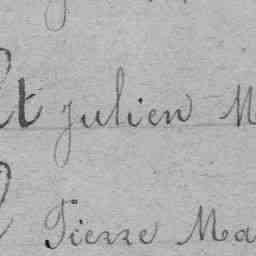 Et Julien M
Pierre Ma